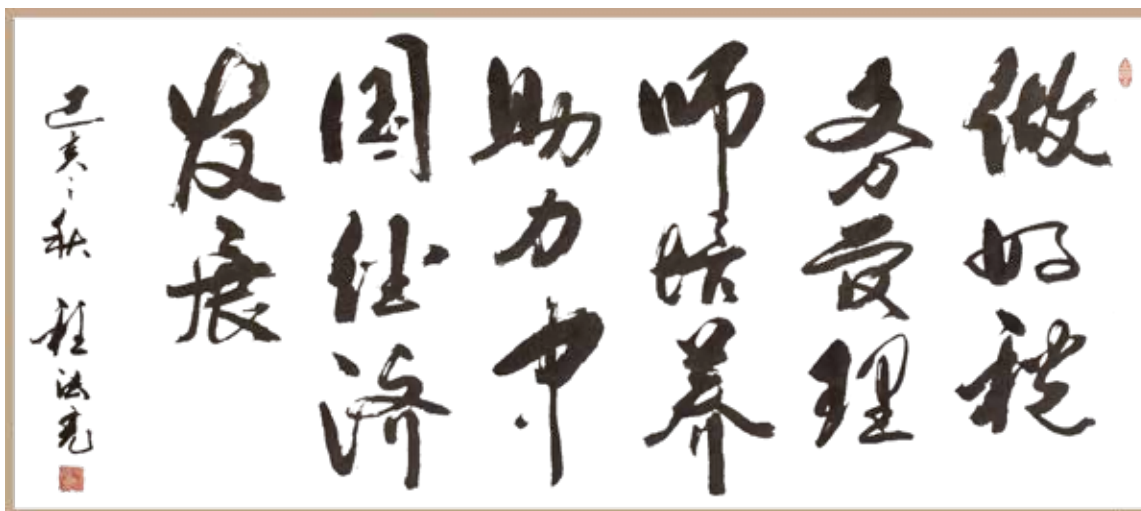 做好税
务管理
师培养
助力中
国经济
发展
己亥之秋 程法光